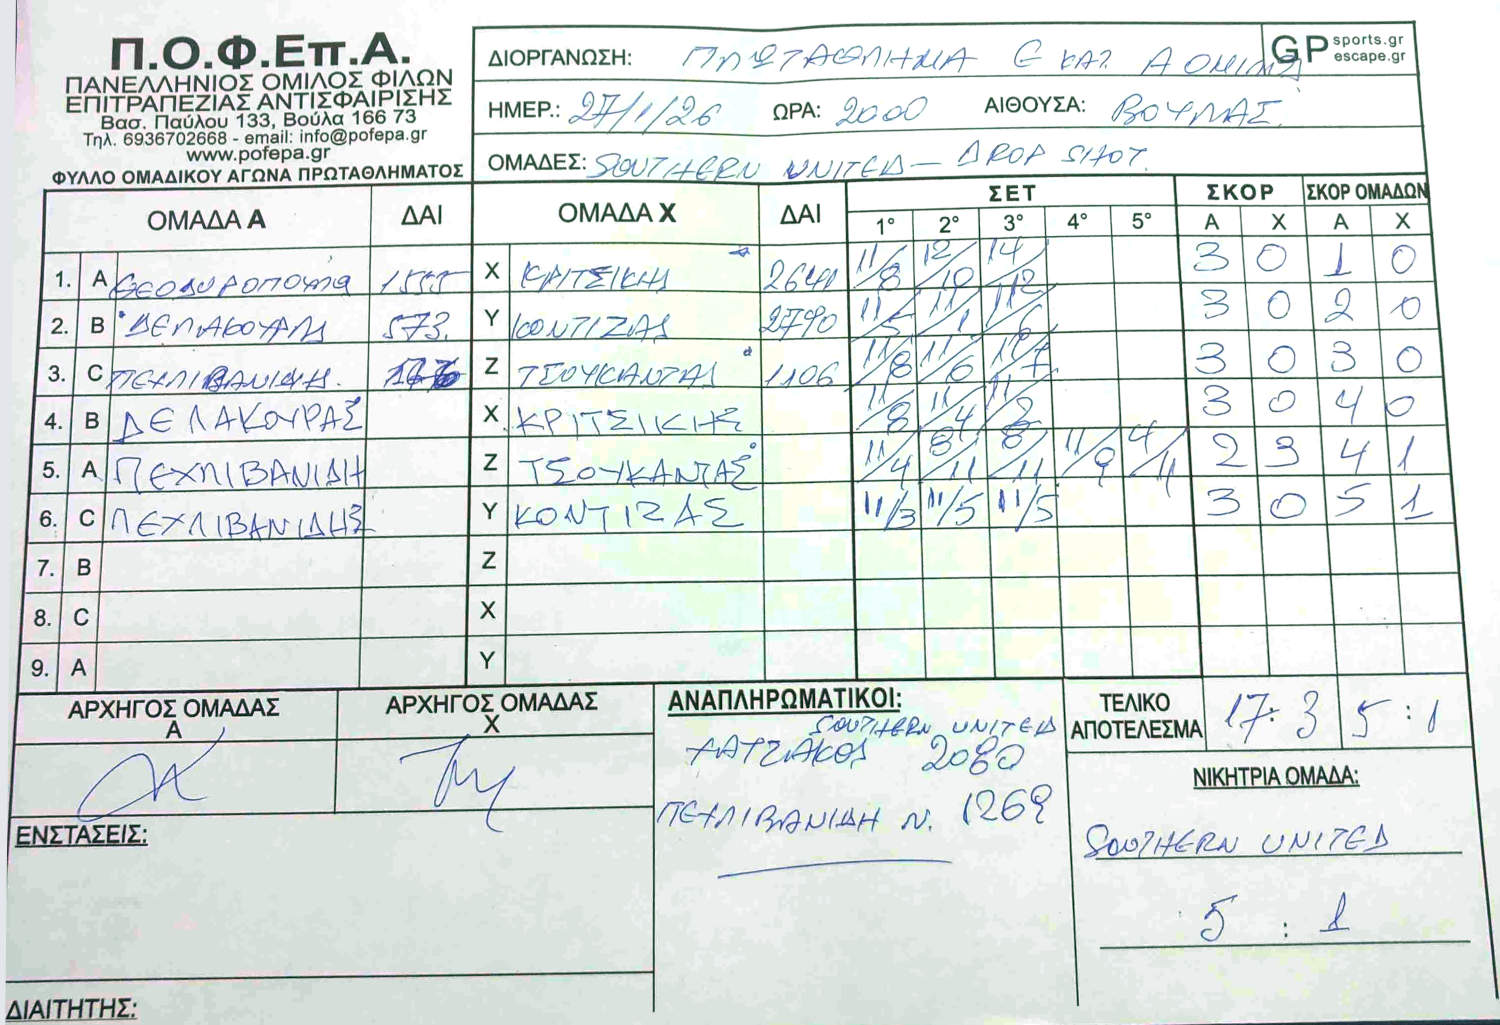 Π.Ο.Φ.Επ.Α.
ΠΑΝΕΛΛΗΝΙΟΣ ΟΜΙΛΟΣ ΦΙΛΩΝ
ΕΠΙΤΡΑΠΕΖΙΑΣ ΑΝΤΙΣΦΑΙΡΙΣΗΣ
Βασ. Παύλου 133, Βούλα 166 73
Τηλ. 6936702668 - email: info@pofepa.gr
www.pofepa.gr
ΦΥΛΛΟ ΟΜΑΔΙΚΟΥ ΑΓΩΝΑ ΠΡΩΤΑΘΛΗΜΑΤΟΣ
ΔΙΟΡΓΑΝΩΣΗ: ΠΡΩΤΑΘΛΗΜΑ Ε ΚΑΤ Α ΟΜΙΛΟΣ
GP sports.gr
escape.gr
ΗΜΕΡ.: 27/1/26 ΩΡΑ: 2000 ΑΙΘΟΥΣΑ: ΒΟΥΛΑΣ
ΟΜΑΔΕΣ: SOUTHERN UNITED - DROP SHOT
ΟΜΑΔΑ Α ΔΑΙ ΟΜΑΔΑ Χ ΔΑΙ ΣΕΤ ΣΚΟΡ ΣΚΟΡ ΟΜΑΔΩΝ
1° 2° 3° 4° 5° Α Χ Α Χ
1. A 1555 X ΚΡΙΤΣΙΚΗΣ 11/8 12/10 14/12 3 0 1 0
2. B ΔΕΛΑΚΟΥΡΑΣ 573 Y ΚΟΝΤΙΖΑΣ 2790 11/5 11/1 11/6 3 0 2 0
3. C ΠΕΧΛΙΒΑΝΙΔΗΣ Z ΤΣΟΥΚΑΝΤΑΣ 1106 11/8 11/6 11/7 3 0 3 0
4. B ΔΕΛΑΚΟΥΡΑΣ X ΚΡΙΤΣΙΚΗΣ 11/8 11/4 11/2 3 0 4 0
5. A ΠΕΧΛΙΒΑΝΙΔΗ Z ΤΣΟΥΚΑΝΤΑΣ 11/4 8/11 8/11 11/9 4/11 2 3 4 1
6. C ΠΕΧΛΙΒΑΝΙΔΗΣ Y ΚΟΝΤΙΖΑΣ 11/3 11/5 11/5 3 0 5 1
7. B Z
8. C X
9. A Y
ΑΡΧΗΓΟΣ ΟΜΑΔΑΣ
Α
ΑΡΧΗΓΟΣ ΟΜΑΔΑΣ
Χ
ΑΝΑΠΛΗΡΩΜΑΤΙΚΟΙ:
SOUTHERN UNITED
ΧΑΤΖΑΚΟΣ 2080
ΠΕΧΛΙΒΑΝΙΔΗ Ν. 1269
ΤΕΛΙΚΟ
ΑΠΟΤΕΛΕΣΜΑ 17:3 5:1
ΝΙΚΗΤΡΙΑ ΟΜΑΔΑ:
SOUTHERN UNITED
5 : 1
ΕΝΣΤΑΣΕΙΣ:
ΔΙΑΙΤΗΤΗΣ: